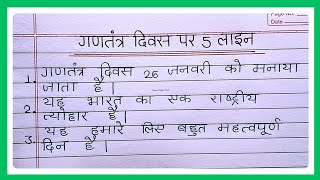 Page No.
Date
गणतंत्र दिवस पर 5 लाइन
1. गणतंत्र दिवस 26 जनवरी को मनाया
जाता है |
2. यह भारत का एक राष्ट्रीय
त्योहार है |
3. यह हमारे लिए बहुत महत्वपूर्ण
दिन है |